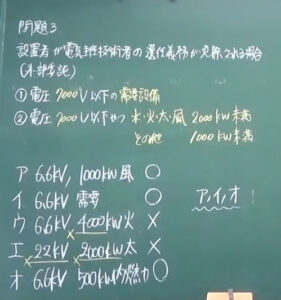 問題3
設置者が電気主任技術者の選任義務が免除される場合
(外部委託)
① 電圧7000V以下の需要設備
② 電圧7000V以下かつ 水・火・太・風 2000kW未満
その他 1000kW未満
ア 6.6kV, 1000kW風 ○
イ 6.6kV 需要 ○
ウ 6.6kV 4000kW火 ×
エ 22kV 2000kW太 ×
× ×
オ 6.6kV 500kW内燃力 ○
ア,イ,オ